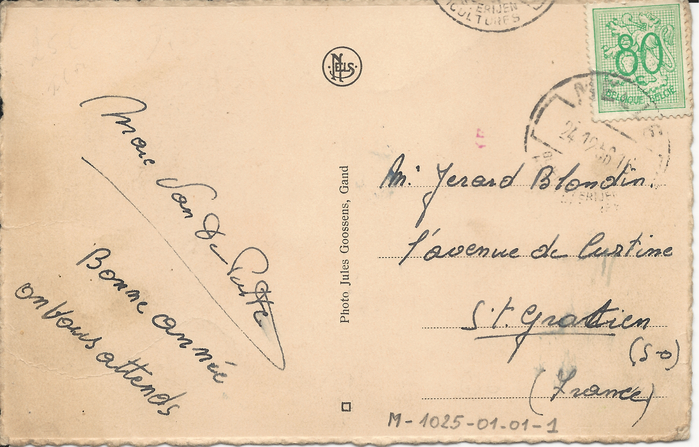 Marc Van De Putte
Bonne année
on vous attends
NELS
Photo Jules Goossens, Gand
STERIJEN
CULTURES
80
BELGIQUE BELGIE
24.10
STERIJEN
Mr Jerard Blondin.
l'avenue de Custine
St. Gratien
(S-O)
(France)
M-1025-01-01-1